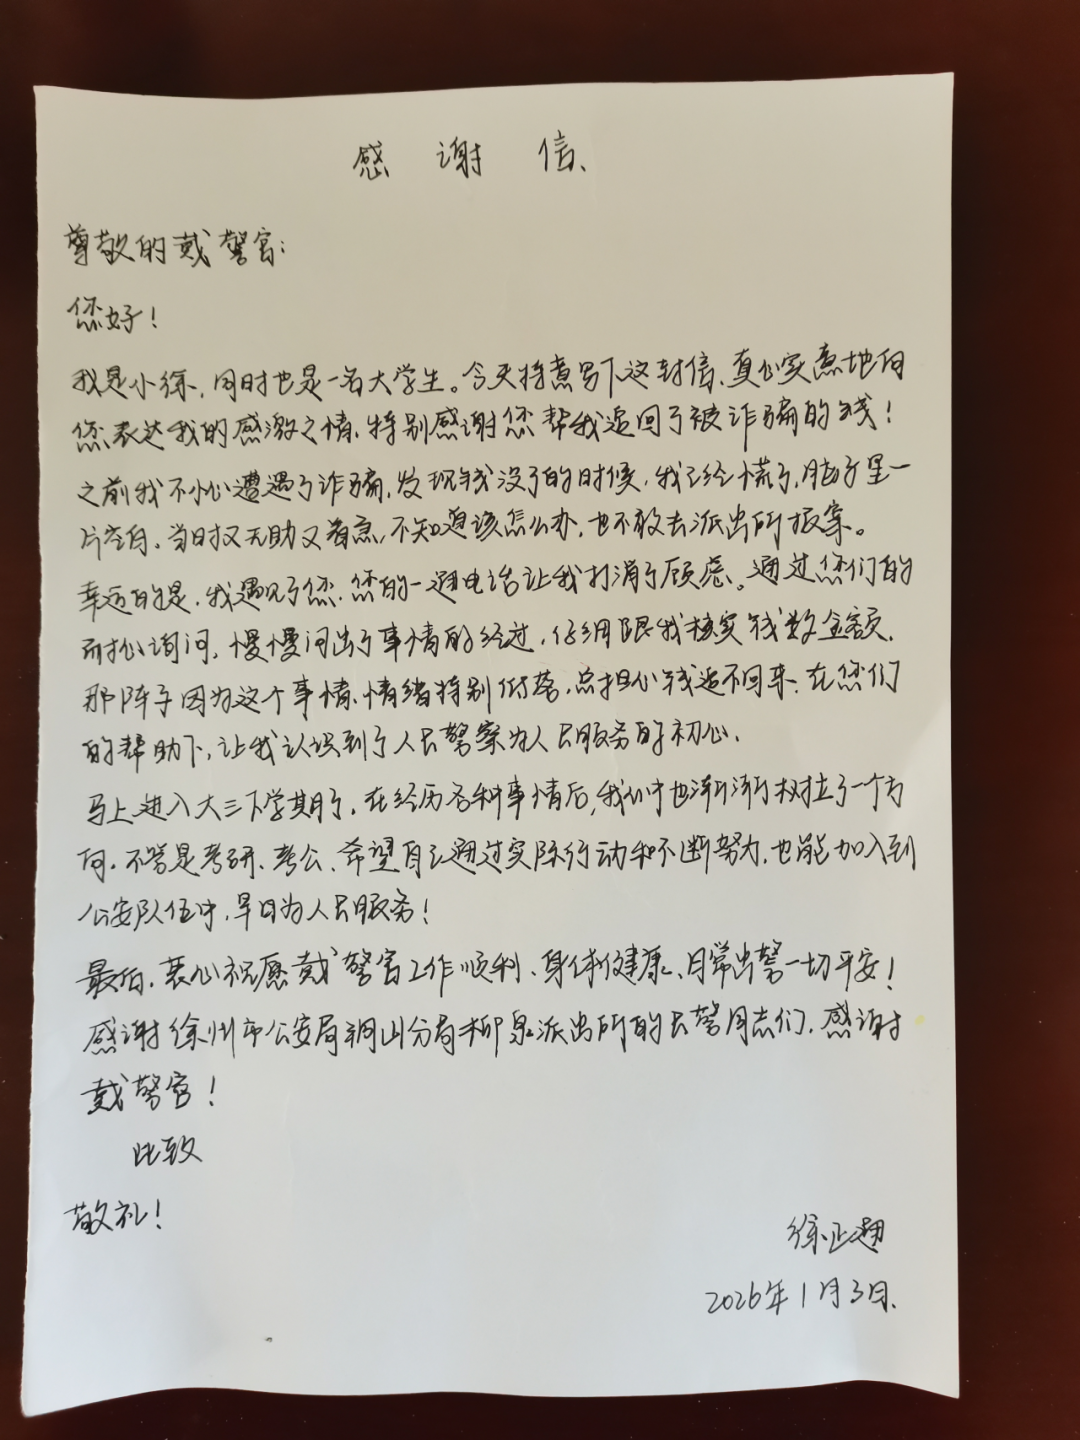 感谢信、
尊敬的戴警官：
您好！
我是小徐、同时也是一名大学生。今天特意写下这封信、真心实意地向
您表达我的感激之情、特别感谢您帮我追回了被诈骗的钱！
之前我不小心遭遇了诈骗，发现钱没了的时候，我已经慌了，脑子里一
片空白。当时又无助又着急，不知道该怎么办，也不敢去派出所报案。
幸运的是，我遇见了您、您的一通电话让我打消了顾虑。通过您们的
耐心询问，慢慢问出了事情的经过，仔细跟我核实钱数金额，
那阵子因为这个事情、情绪特别低落，总担心钱追不回来、在您们
的帮助下，让我认识到了人民警察为人民服务的初心，
马上进入大三下学期了，在经历各种事情后，我心中也渐渐树立了一个方
向，不管是考研、考公、希望自己通过实际行动和不断努力，也能加入到
公安队伍中，早日为人民服务！
最后，衷心祝愿戴警官工作顺利、身体健康、日常出警一切平安！
感谢徐州市公安局铜山分局柳泉派出所的民警同志们，感谢
戴警官！
此致
敬礼！
徐正翅
2026年1月3日、